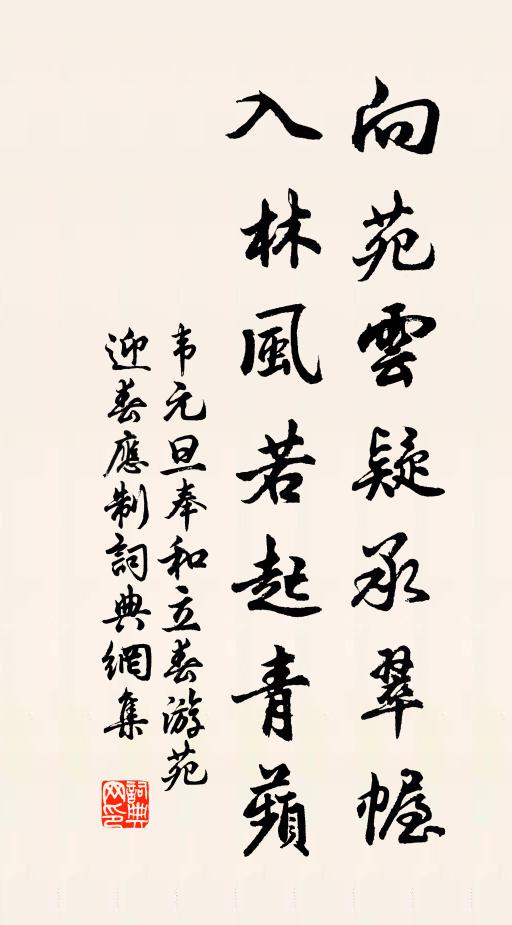 向苑雲疑承翠幄
入林風若起青蘋
韦元旦奉和立春游苑
迎春應制詞典網集
詞典网印